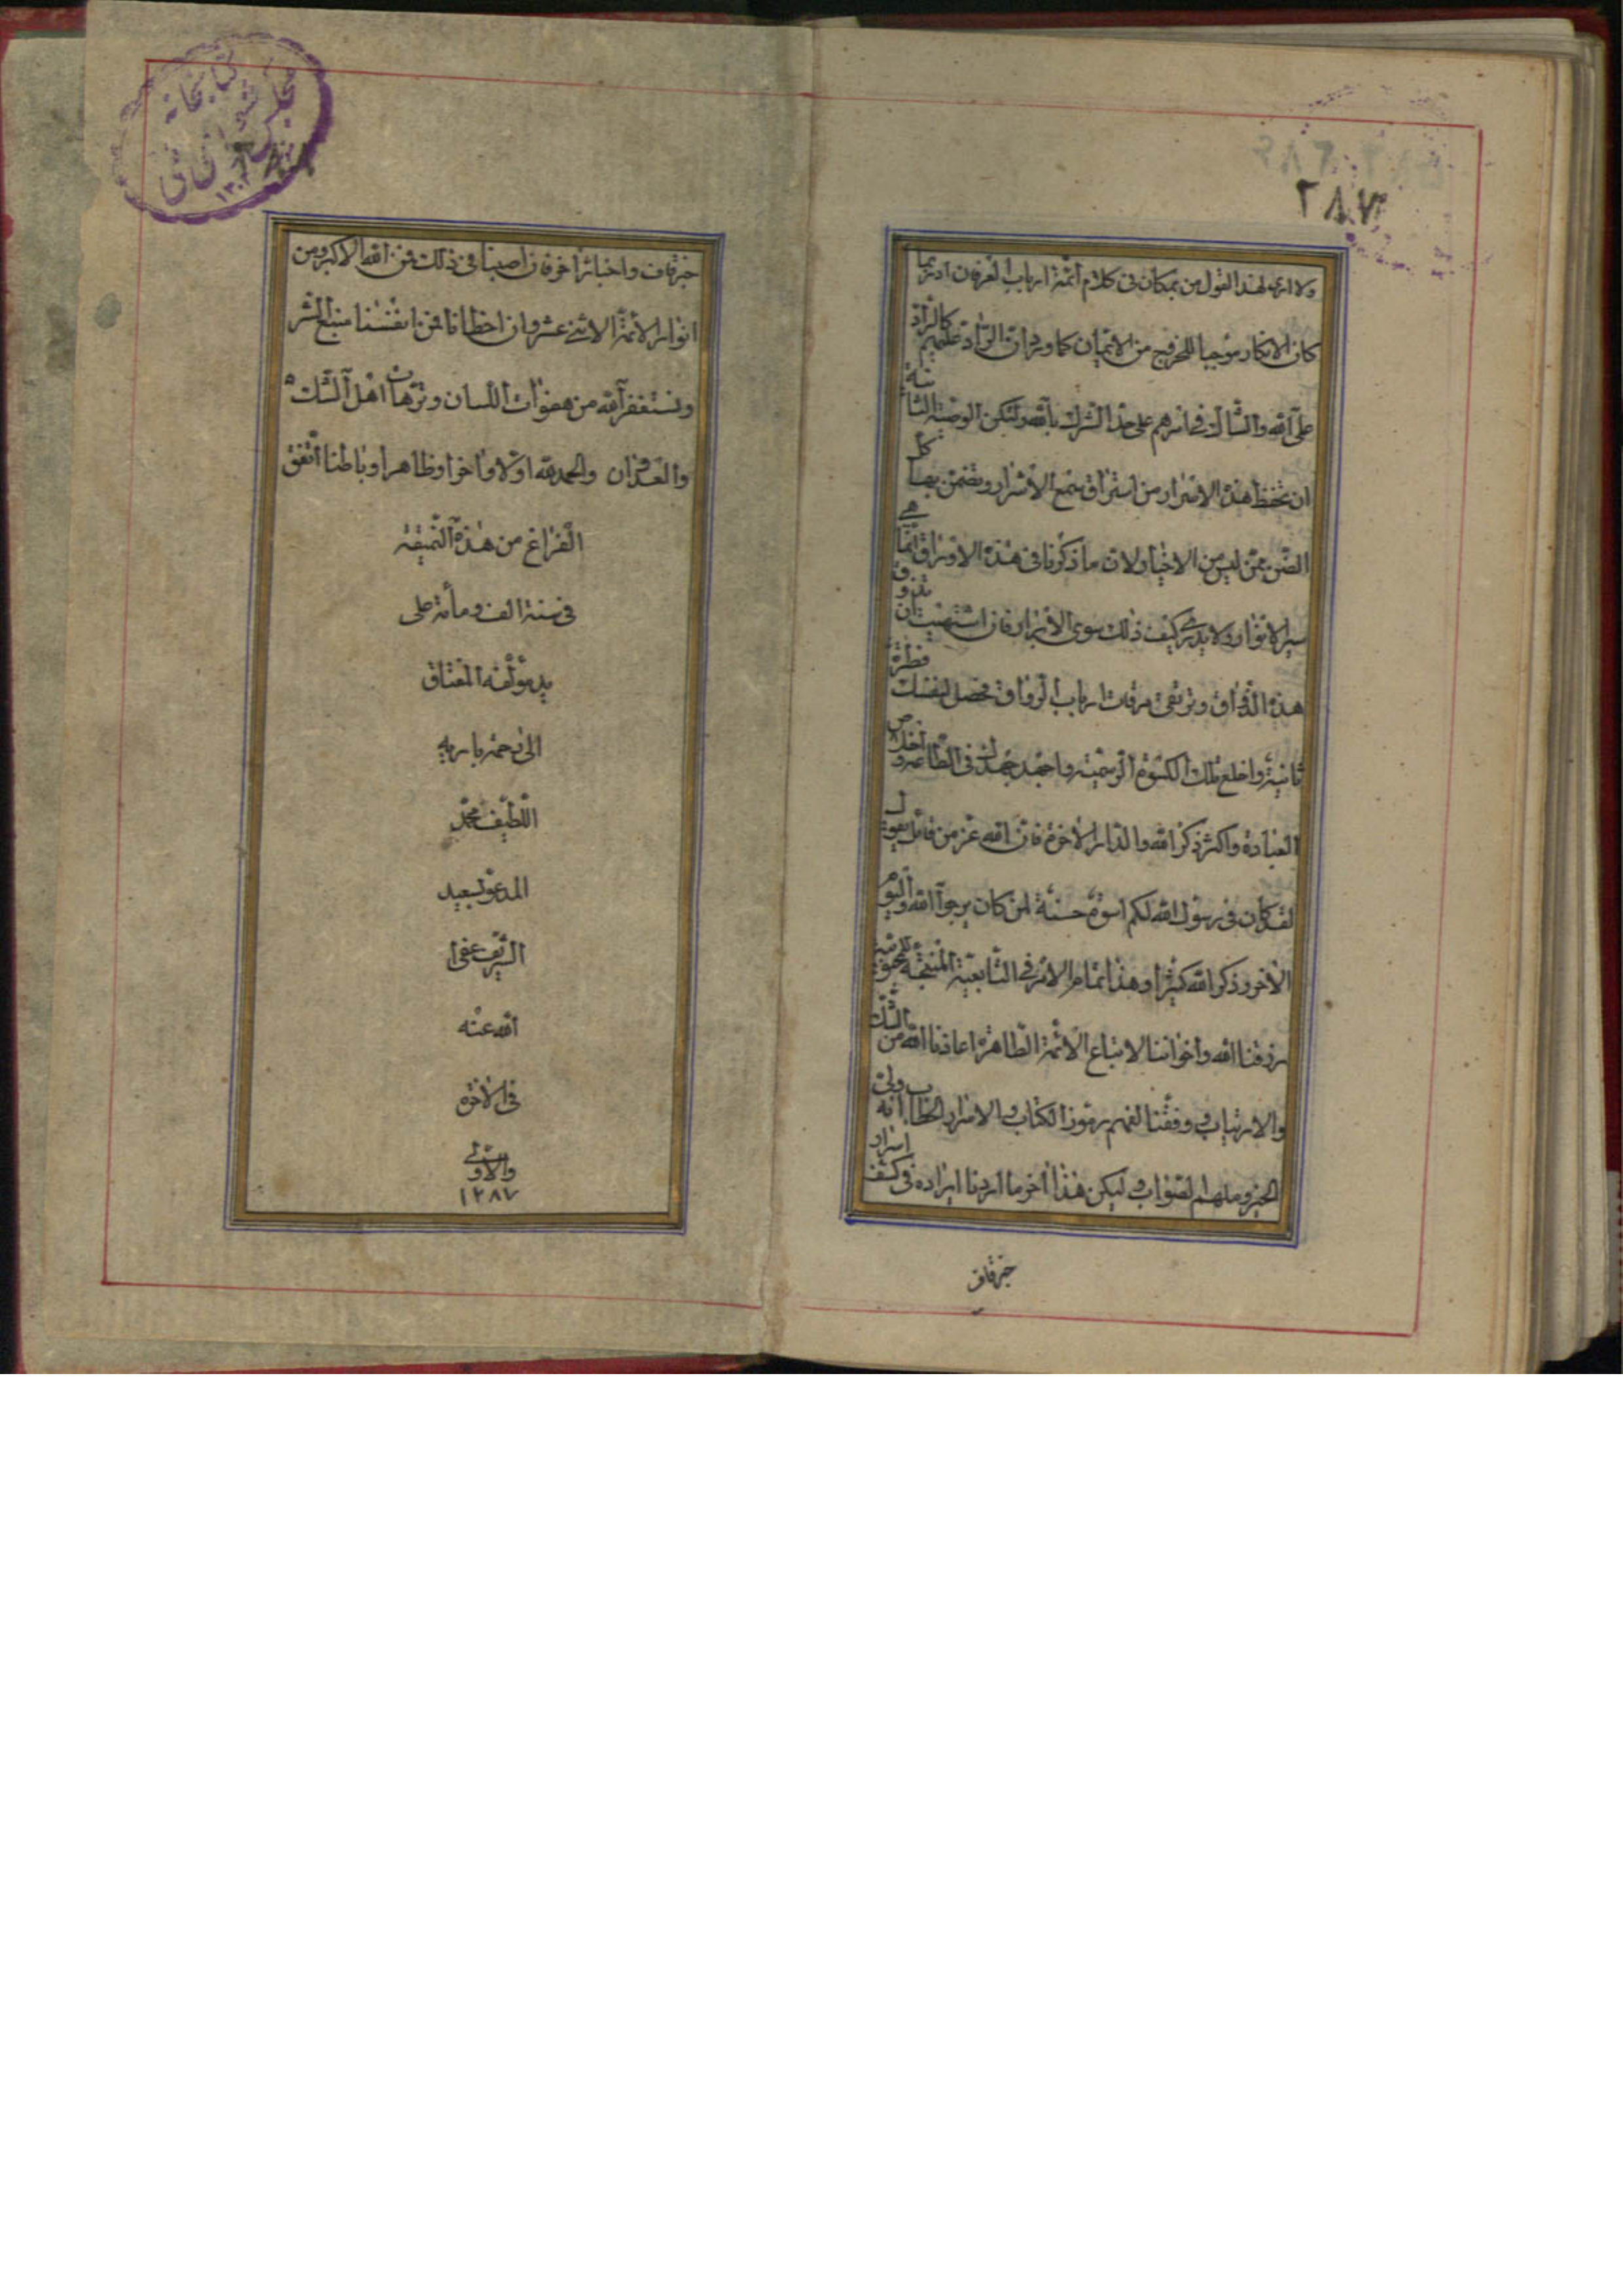 ٢٨٧
ولا ارى لهذا القول من بمكان فى كلام ائمة ارباب العرفان اذ ربما
كان الانكار موجبا للخروج من الايمان كما ورد ان الراد عليهم كالراد
على الله والشاك فى امرهم على حد الشرك بالله ولتكن الوصية الثانية
ان تحفظ هذه الاسرار من استراق سمع الاشرار وتضمن بها كل
الضن عمن ليس من الاخيار لان ما ذكرنا فى هذه الاوراق انما هى
سير الانوار ولا يدرى كيف ذلك سوى الابرار فان اشتهيت ان تذوق
هذه الذواق وترتقى مرقات ارباب الرواق فحصل لنفسك فطرة
ثانية واخلع تلك الكسوة الرسمية واجهد جهدك فى الطاعة واخلص
العبادة واكثر ذكر الله والدار الاخرة فان الله عز من قائل يقول
لقد كان فى رسول الله لكم اسوة حسنة لمن كان يرجوا الله واليوم
الاخر وذكر الله كثيرا وهذا تمام الامر فى التابعية المنتجة للمحبوبية
رزقنا الله واخواننا لاتباع الائمة الطاهرة اعاذنا الله من الشك
والارتياب ووفقنا لفهم رموز الكتاب والاسرار الخطاب انه ولى
الخير وملهم الصواب وليكن هذا اخر ما اردنا ايراده فى كشف اسرار
خبر قاف
خبر قاف واخبار اخر فان اصبنا فى ذلك فمن الله الاكبر ومن
انوار الائمة الاثنى عشر وان اخطانا فمن انفسنا منبع الشر
ونستغفر الله من هفوات اللسان وترهات اهل الشك
والعدوان والحمد لله اولا واخرا وظاهرا وباطنا اتفق
الفراغ من هذه النميقة
فى سنة الف ومأة على
يد مؤلفه المفتاق
الى رحمة باريه
اللطيف محمد
المدعو بسعيد
الشريف عفى
الله عنه
فى الاخرة
والاولى
١٢٨٧
كتابخانه
مجلس شوراى ملى